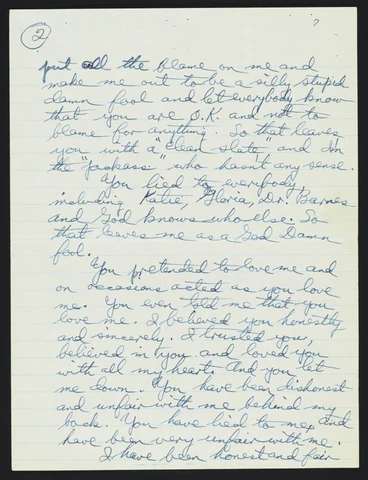 2
?
put all the blame on me and
make me out to be a silly stupid
damn fool and let everybody know
that you are O.K. and not to
blame for anything. So that leaves
you with a "clean slate" and Im
the "jackass" who hasn't any sense.
You lied to everybody,
including Katie, Gloria, Dr. Barnes
and God knows who else. So
that leaves me as a God Damn
fool.
You pretended to love me and
on occasions acted as you love
me. You even told me that you
love me. I believed you honestly
and sincerely. I trusted you,
believed in you and loved you
with all my heart. And you let
me down. You have been dishonest
and unfair with me behind my
back. You have lied to me, and
have been very unfair with me.
I have been honest and fair